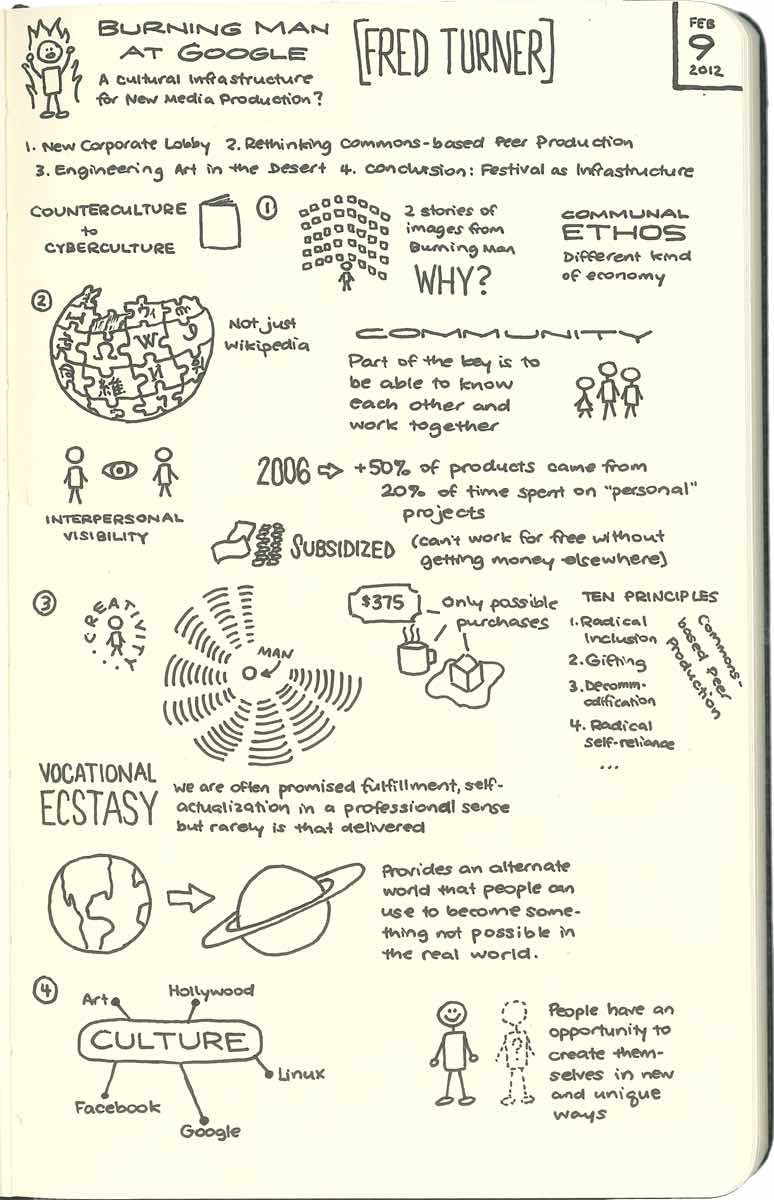 BURNING MAN
AT GOOGLE
A cultural Infrastructure
for New Media Production?
[FRED TURNER]
FEB
9
2012
1. New Corporate Lobby 2. Rethinking Commons-based Peer Production
3. Engineering Art in the Desert 4. Conclusion: Festival as Infrastructure
COUNTERCULTURE
to
CYBERCULTURE
1
2 stories of
images from
Burning Man
WHY?
COMMUNAL
ETHOS
Different kind
of economy
2
Ω
W
И
維
Not just
Wikipedia
COMMUNITY
Part of the key is to
be able to know
each other and
work together
INTERPERSONAL
VISIBILITY
2006 ⇨ +50% of products came from
20% of time spent on "personal"
projects
SUBSIDIZED (can't work for free without
getting money elsewhere)
3
CREATIVITY
MAN
$375
Only possible
purchases
TEN PRINCIPLES
1. Radical
Inclusion
2. Gifting
3. Decomm-
odification
4. Radical
self-reliance
...
Commons-
based peer
Production
VOCATIONAL
ECSTASY
we are often promised fulfillment, self-
actualization in a professional sense
but rarely is that delivered
Provides an alternate
world that people can
use to become some-
thing not possible in
the real world.
4
Art
Hollywood
CULTURE
Linux
Facebook
Google
?
People have an
opportunity to
create them-
selves in new
and unique
ways